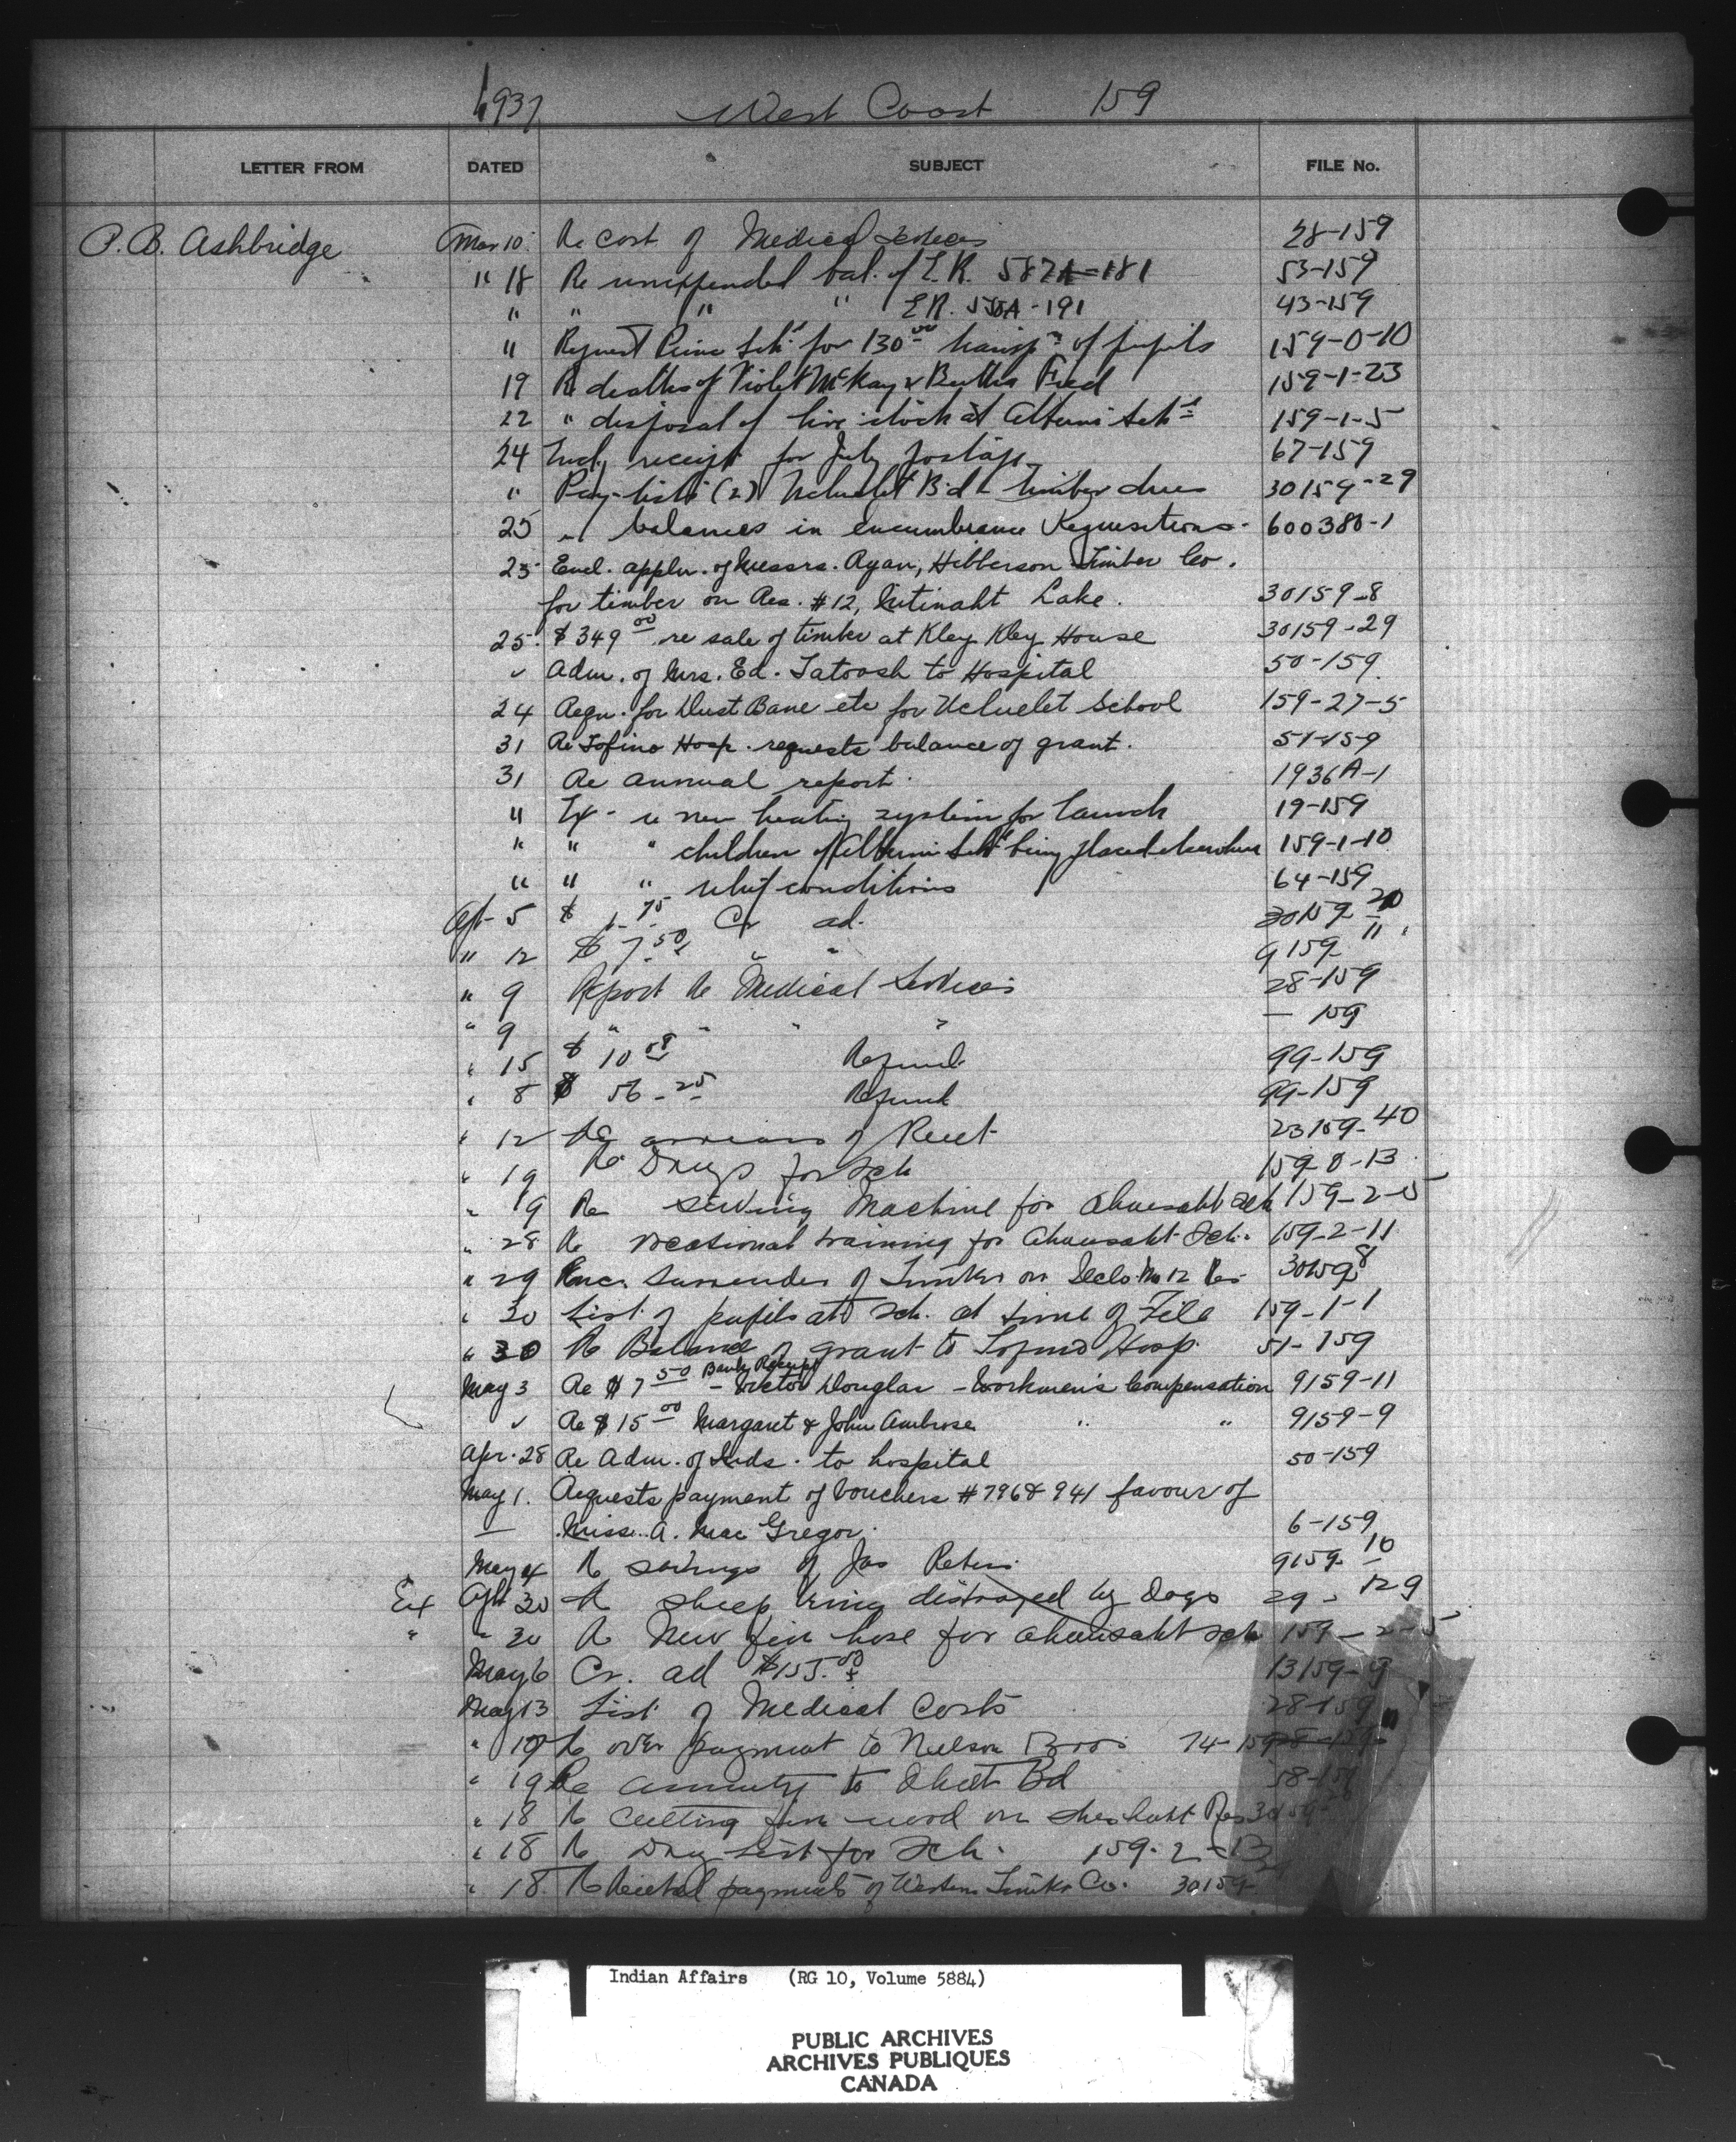 1937 West Coast 159
LETTER FROM DATED SUBJECT FILE No.
P. B. Ashbridge Mar 10 Re cost of Medical Services 28-159
" 18 Re unexpended bal. of E.R. 582A-181 53-159
" " " " E.R. 550A-191 43-159
" Request Prince for 130.00 transp. of pupils 159-0-10
19 Re deaths of Violet McKay & Bertha Fred 159-1-23
22 " disposal of live stock at Alberni Sch. 159-1-5
24 Encl. receipt for July postage 67-159
" Pay-lists (2) Ucluelet B'd timber dues 30159-29
25 " balances in encumbrance Requisitions. 600380-1
25 Encl. appln. of Messrs. Ryan, Hibberson Timber Co.
for timber on Res. #12, Nitinaht Lake. 30159-8
25. $349 00 re sale of timber at Kley Kley House 30159-29
" Adm. of Mrs. Ed. Tatoosh to Hospital 50-159
24 Reqn. for Dust Bane etc for Ucluelet School 159-27-5
31 Re Tofino Hosp. requests balance of grant. 51-159
31 Re annual report. 1936A-1
" re new heating system for launch 19-159
" " " children of Alberni Sch being placed elsewhere 159-1-10
" " " relief conditions 64-159
Apr 5 $ 1.75 Cr ad. 30159-20
" 12 $ 7.50 " " 9159-11
" 9 Report Re Medical Services 28-159
" 9 " " " " — 159
" 15 $ 10 08 Refund 99-159
" 8 $ 56-25 Refund 99-159
" 12 Re arrears of Rent 23159-40
" 19 Re Drugs for Sch 159-0-13
" 19 Re Sewing Machine for Ahousaht Sch 159-2-5
" 28 Re vocational training for Ahousaht Sch. 159-2-11
" 29 Enc. Surrender of Timber on No 12 Res 30159-8
" 30 List of pupils at Sch. at time of Fire 159-1-1
" 30 Re Balance of grant to Tofino Hosp. 51-159
May 3 Re $7 50 Bank Receipt - Victor Douglas - Workmen's Compensation 9159-11
" Re $15 00 Margaret & John Ambrose " " 9159-9
Apr. 28 Re Adm. of Inds. to hospital 50-159
May 1. Requests payment of Vouchers #796 & 941 favour of
— Miss A. Mac Gregor. 6-159
May 4 Re savings of Jas Peters 9159-10
Ex Apr 30 Re sheep being distroyed by Dogs 29-129
" " 30 Re New fire hose for Ahousaht Sch 159-2-5
May 6 Cr. ad $155.00 13159-9
May 13 List of Medical Costs 28-159
" 19 Re over payment to Nelson Bros. 74-159
" 19 Re annuity to Bd 58-159
" 18 Re Cutting fire wood on Sheshaht Res
" 18 Re Drug List for Sch. 159-2-13
" 18 Re payments of Western Timber Co. 30159-
Indian Affairs (RG 10, Volume 5884)
PUBLIC ARCHIVES
ARCHIVES PUBLIQUES
CANADA